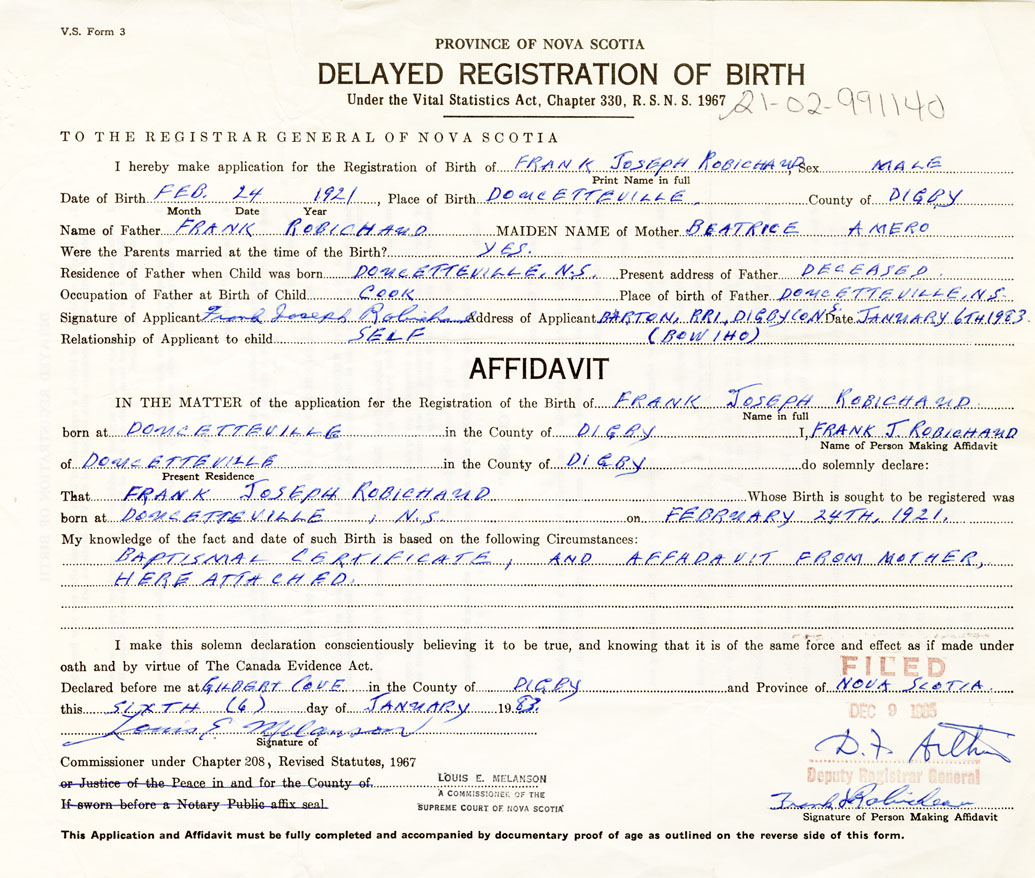 V.S. Form 3
PROVINCE OF NOVA SCOTIA
DELAYED REGISTRATION OF BIRTH
Under the Vital Statistics Act, Chapter 330, R.S.N.S. 1967 21-02-991140
TO THE REGISTRAR GENERAL OF NOVA SCOTIA
I hereby make application for the Registration of Birth of FRANK JOSEPH ROBICHAUD, Sex MALE
Print Name in full
Date of Birth FEB. 24 1921, Place of Birth DOUCETTEVILLE. County of DIGBY
Month Date Year
Name of Father FRANK ROBICHAUD MAIDEN NAME of Mother BEATRICE AMERO
Were the Parents married at the time of the Birth? YES.
Residence of Father when Child was born DOUCETTEVILLE, N.S. Present address of Father DECEASED.
Occupation of Father at Birth of Child COOK Place of birth of Father DOUCETTEVILLE, N.S.
Signature of Applicant Frank Joseph Robichaud Address of Applicant BARTON, RR1, DIGBY CO N.S. Date JANUARY 6TH 1983
Relationship of Applicant to child SELF (BOW 1H0)
AFFIDAVIT
IN THE MATTER of the application fer the Registration of the Birth of FRANK JOSEPH ROBICHAUD.
Name in full
born at DOUCETTEVILLE in the County of DIGBY I, FRANK J. ROBICHAUD
Name of Person Making Affidavit
of DOUCETTEVILLE in the County of DIGBY do solemnly declare:
Present Residence
That FRANK JOSEPH ROBICHAUD Whose Birth is sought to be registered was
born at DOUCETTEVILLE, N.S. on FEBRUARY 24TH, 1921.
My knowledge of the fact and date of such Birth is based on the following Circumstances:
BAPTISMAL CERTIFICATE, AND AFFADAVIT FROM MOTHER,
HERE ATTACHED.
I make this solemn declaration conscientiously believing it to be true, and knowing that it is of the same force and effect as if made under
oath and by virtue of The Canada Evidence Act.
FILED
Declared before me at GILBERT COVE in the County of DIGBY and Province of NOVA SCOTIA.
this SIXTH (6) day of JANUARY 1983.
DEC 9 1985
Louis E. Melanson
Signature of
D.F. Arthur
Commissioner under Chapter 208, Revised Statutes, 1967
Deputy Registrar General
or Justice of the Peace in and for the County of
LOUIS E. MELANSON
A COMMISSIONER OF THE
SUPREME COURT OF NOVA SCOTIA
If sworn before a Notary Public affix seal.
Frank J Robicheau
Signature of Person Making Affidavit
This Application and Affidavit must be fully completed and accompanied by documentary proof of age as outlined on the reverse side of this form.